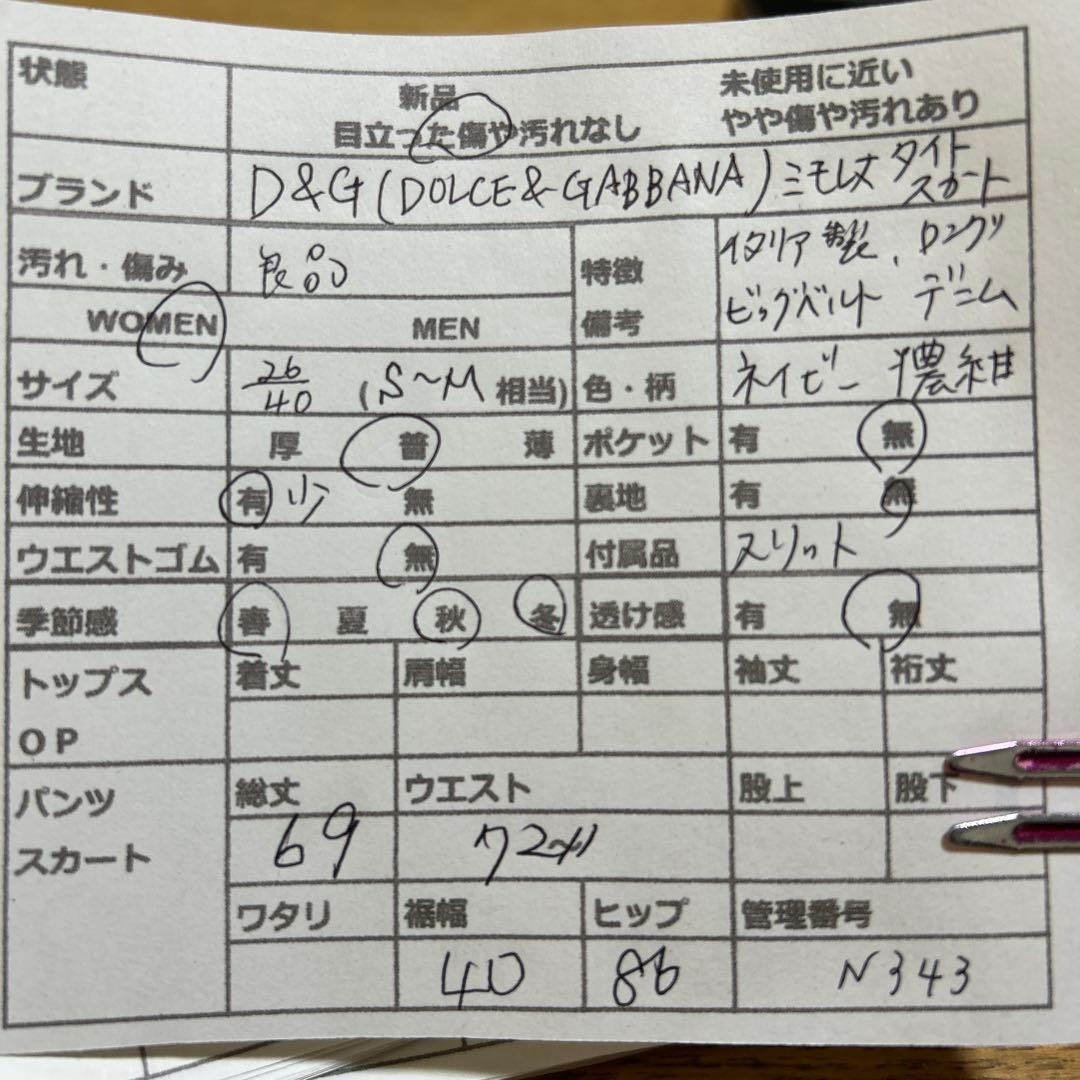 状態
新品
未使用に近い
目立った傷や汚れなし
やや傷や汚れあり
ブランド
D&G(DOLCE&GABBANA)ミモレ丈 タイト
スカート
汚れ・傷み
良品
特徴
備考
イタリア製、ロング
ビッグベルト デニム
WOMEN MEN
サイズ
26
40
(S~M 相当)
色・柄
ネイビー 濃紺
生地 厚 普 薄
ポケット 有 無
伸縮性 有 少 無
裏地 有 無
ウエストゴム 有 無
付属品 スリット
季節感 春 夏 秋 冬
透け感 有 無
トップス
OP
着丈 肩幅 身幅 袖丈 裄丈
パンツ
スカート
総丈 ウエスト 股上 股下
69 72
ワタリ 裾幅 ヒップ 管理番号
40 86 N343